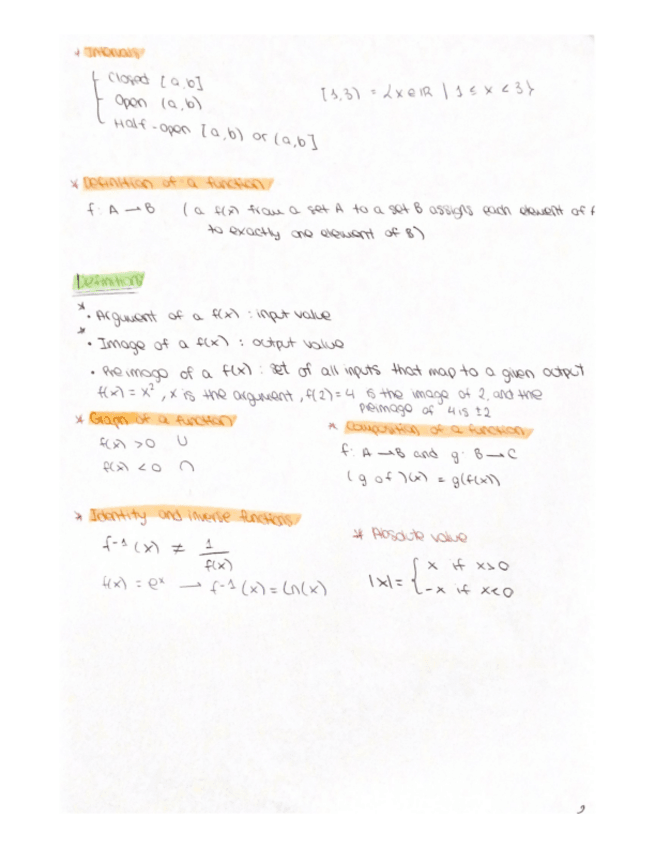 * Intervals
Closed [a,b]
Open (a,b)
Half-open [a,b) or (a,b]
[1,3) = {x∈ℝ | 1 ≤ x < 3}
* Definition of a function
f: A → B (a f(x) from a set A to a set B assigns each element of
to exactly one element of B)
Definitions
* • Argument of a f(x) : input value
* • Image of a f(x) : output value
• Preimage of a f(x) : set of all inputs that map to a given output
f(x) = x², x is the argument, f(2)=4 is the image of 2, and the
preimage of 4 is ±2
* Graph of a function
f(x) > 0 ∪
f(x) < 0 ∩
* Composition of a function
f: A → B and g: B → C
(g o f)(x) = g(f(x))
* Identity and inverse functions
f-1(x) ≠ 1/f(x)
f(x) = eˣ → f-1(x) = ln(x)
* Absolute value
|x| = { x if x>0
-x if x<0